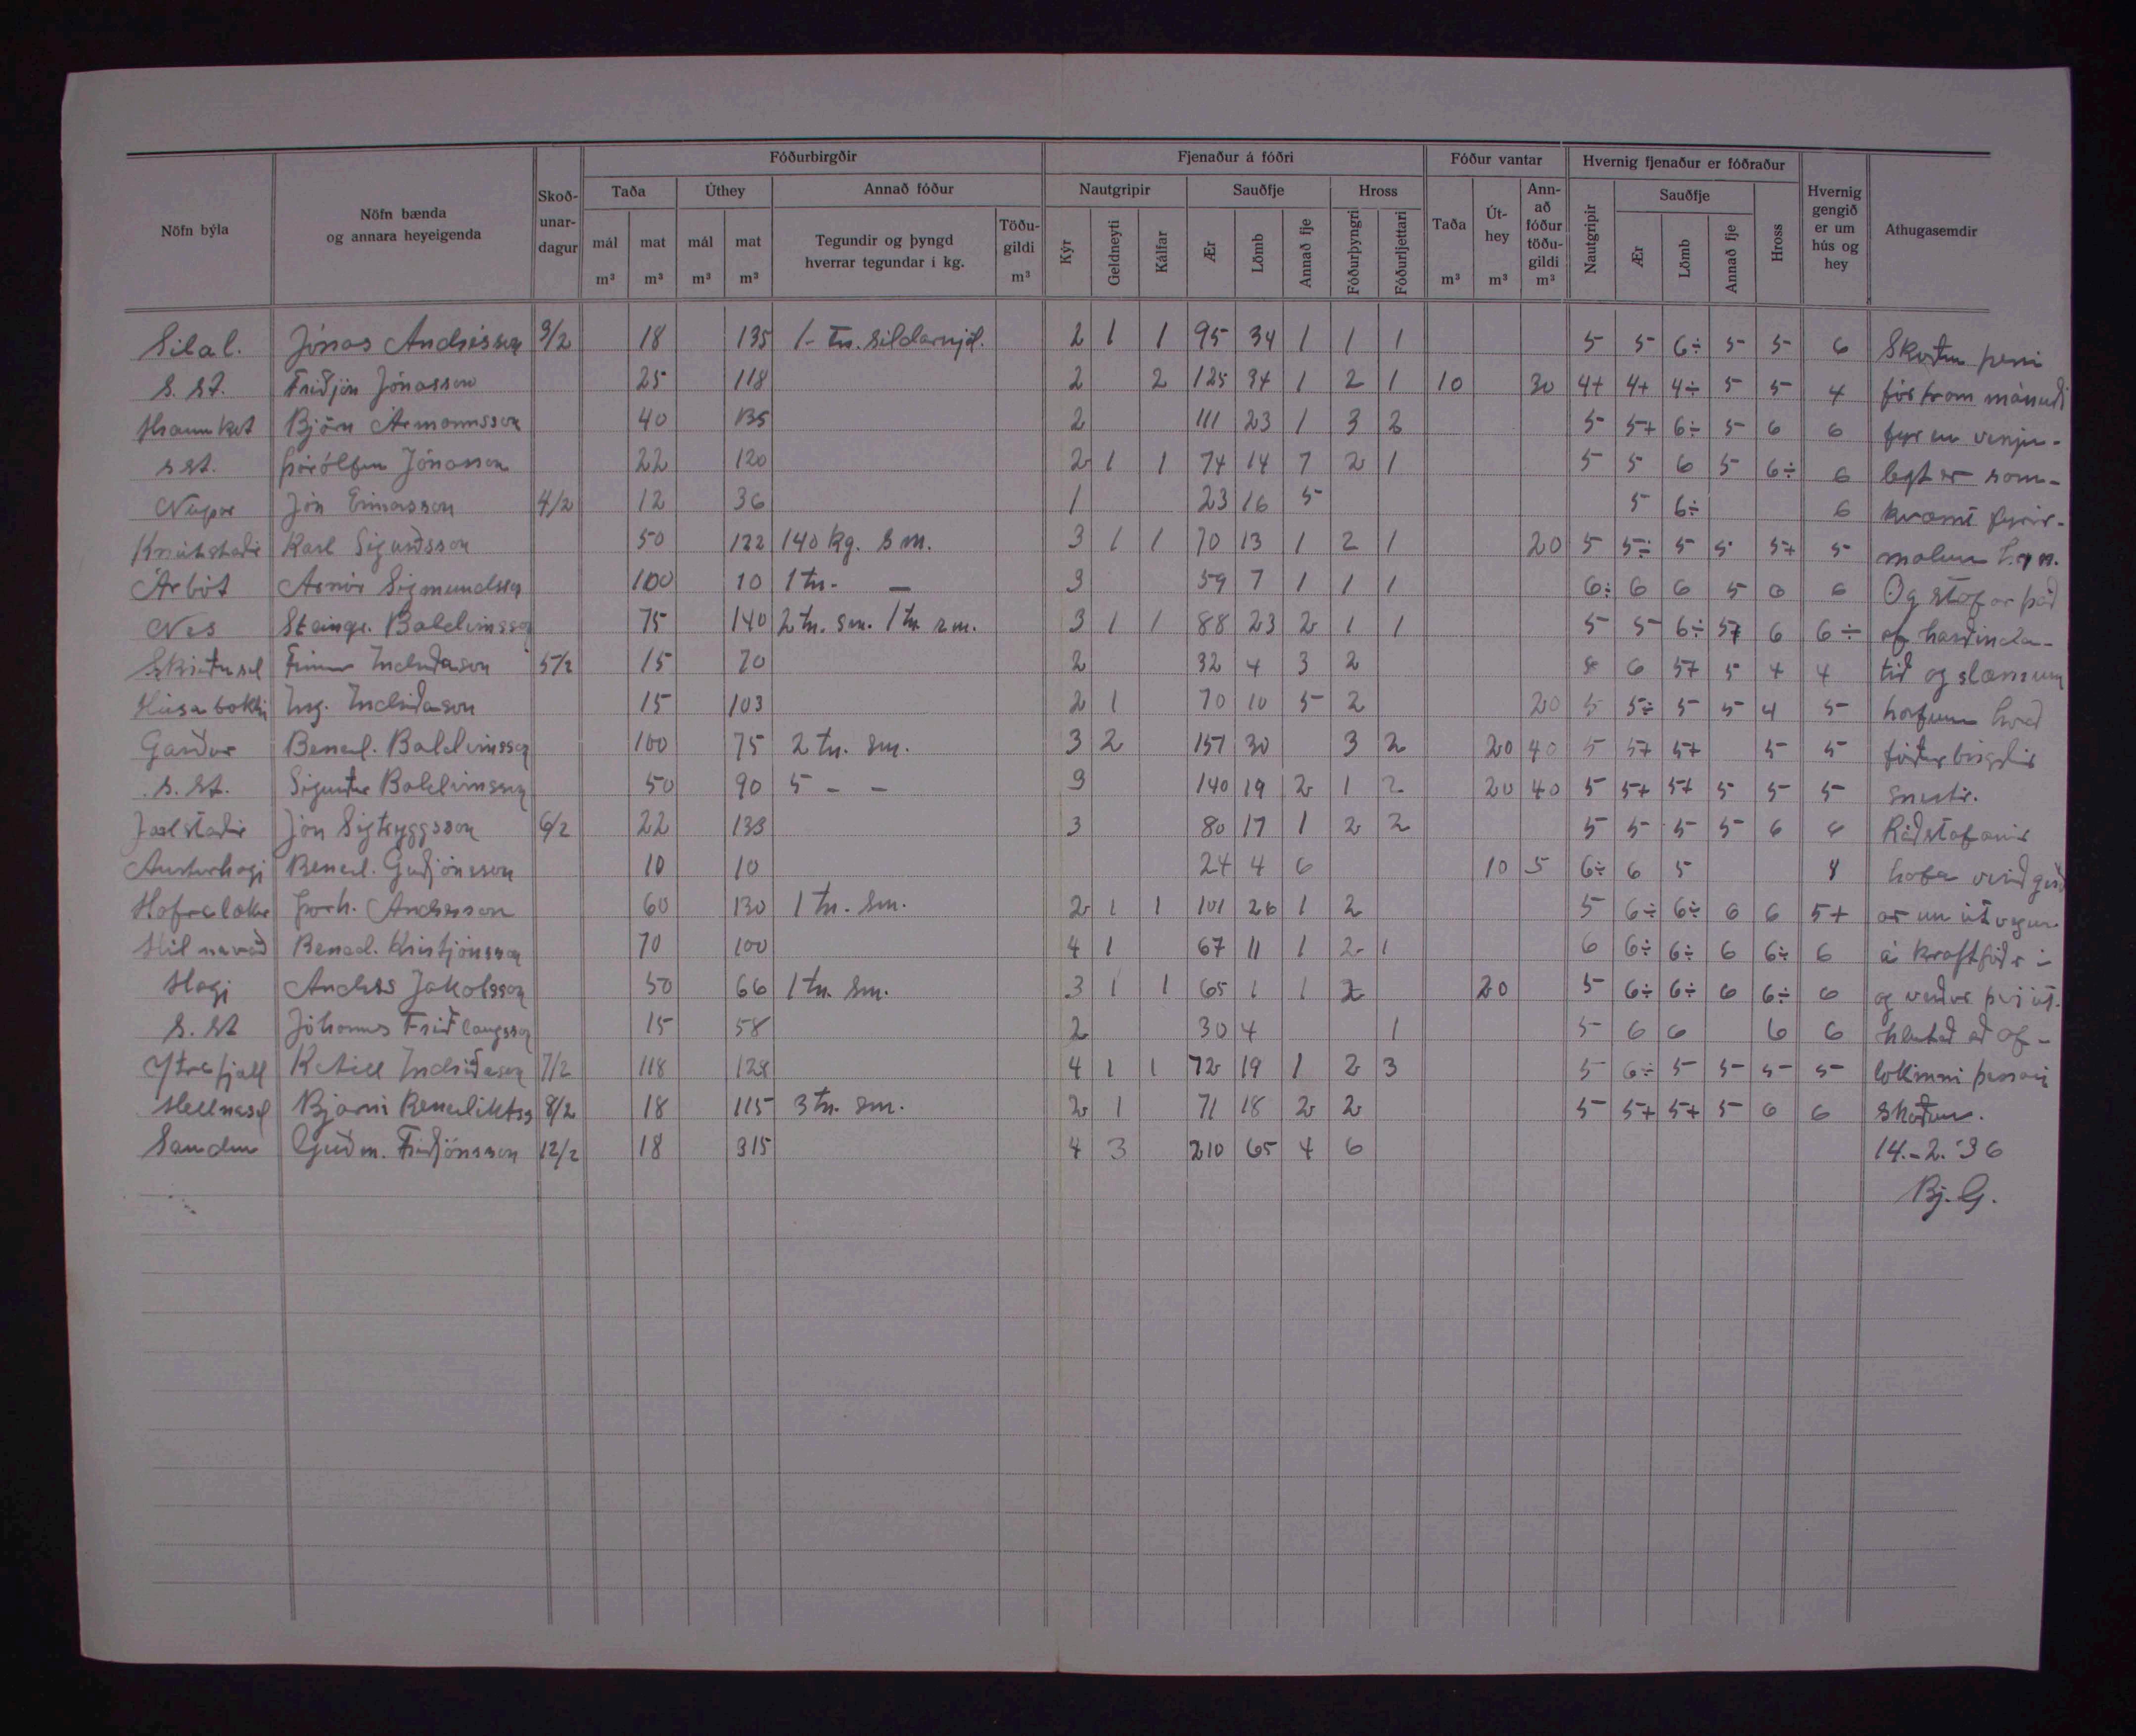 Fóðurbirgðir Fjenaður á fóðri Fóður vantar Hvernig fjenaður er fóðraður
Nöfn býla Nöfn bænda og annara heyeigenda Skoðunardagur Taða Úthey Annað fóður Nautgripir Sauðfje Hross Taða Úthey Annað fóður töðugildi Nautgripir Sauðfje Hross Hvernig gengið er um hús og hey Athugasemdir
mál m³ mat m³ mál m³ mat m³ Tegundir og þyngd hverrar tegundar í kg. Töðugildi m³ Kýr Geldneyti Kálfar Ær Lömb Annað fje Fóðurþyngri Fóðurljettari m³ m³ m³ Ær Lömb Annað fje
Sílal. Jónas Andrésson 3/2 18 135 1 - tn. síldarmjöl. 2 1 1 95 34 1 1 1 5 5 6÷ 5 5 6 Skoðun þessi
S. st. Friðjón Jónasson 25 118 2 2 125 34 1 2 1 10 30 4+ 4+ 4÷ 5 5 4 fór fram mánuði
Hraunkot Björn Ármannsson 40 135 2 111 23 1 3 2 5 5+ 6÷ 5 6 6 fyr en venju-
s st. Þórólfur Jónasson 22 120 2 1 1 74 14 7 2 1 5 5 6 5 6÷ 6 legt er sam-
Núpar Jón Einarsson 4/2 12 36 1 23 16 5 5 6÷ 6 kvæmt fyrir-
Knútstaðir Karl Sigurðsson 50 122 140 kg. s m. 3 1 1 70 13 1 2 1 20 5 5÷ 5 5 5+ 5 mælum
Árbót Arnór Sigmundsson 100 10 1 tn. - 3 59 7 1 1 1 6÷ 6 6 5 6 6 Og stafar það
Nes Steingr. Baldvinsson 75 140 2 tn. sm. 1 tn. rm. 3 1 1 88 23 2 1 1 5 5 6÷ 5+ 6 6÷ af harðinda-
Skriðusel Finnur Indriðason 5/2 15 70 2 32 4 3 2 6 5+ 5 4 4 tíð og slæmum
Húsabakki Ing. Indriðason 15 103 2 1 70 10 5 2 20 5 5÷ 5 5 4 5 horfum hvað
Garður Bened. Baldvinsson 100 75 2 tn. sm. 3 2 151 30 3 2 20 40 5 5+ 5+ 5 5 fóðurbirgðir
s. st. Sigurður Baldvinsson 50 90 5 - - 3 140 19 2 1 2 20 40 5 5+ 5+ 5 5 5 snertir.
Jarlstaðir Jón Sigtryggsson 6/2 22 133 3 80 17 1 2 2 5 5 5 5 6 6 Ráðstafanir
Austurhagi Bened. Guðjónsson 10 10 24 4 6 10 5 6÷ 6 5 hafa verið gerð
Hafralækur Þorh. Andrésson 60 130 1 tn. sm. 2 1 1 101 26 1 2 5 6÷ 6÷ 6 6 5+ ar um útvegun
Hólmavað Bened. Kristjánsson 70 100 4 1 67 11 1 2 1 6 6÷ 6÷ 6 6÷ 6 á kraftfóðri
Hagi Andrés Jakobsson 50 66 1 tn. sm. 3 1 1 65 1 1 2 20 5 6÷ 6÷ 6 6÷ 6 og verður því út-
S. st Jóhannes Friðlaugsson 15 58 2 30 4 1 5 6 6 6 6 hlutað að af-
Ytrafjall Ketill Indriðason 7/2 118 128 4 1 1 72 19 1 2 3 5 6÷ 5 5 5 5 lokinni þessari
Hellnasel Bjarni Benediktss 8/2 18 115 3 tn. sm. 2 1 71 18 2 2 5 5+ 5+ 5 6 6 skoðun.
Sandur Guðm. Friðjónsson 12/2 18 315 4 3 210 65 4 6 14. - 2. '36
Bj. G.